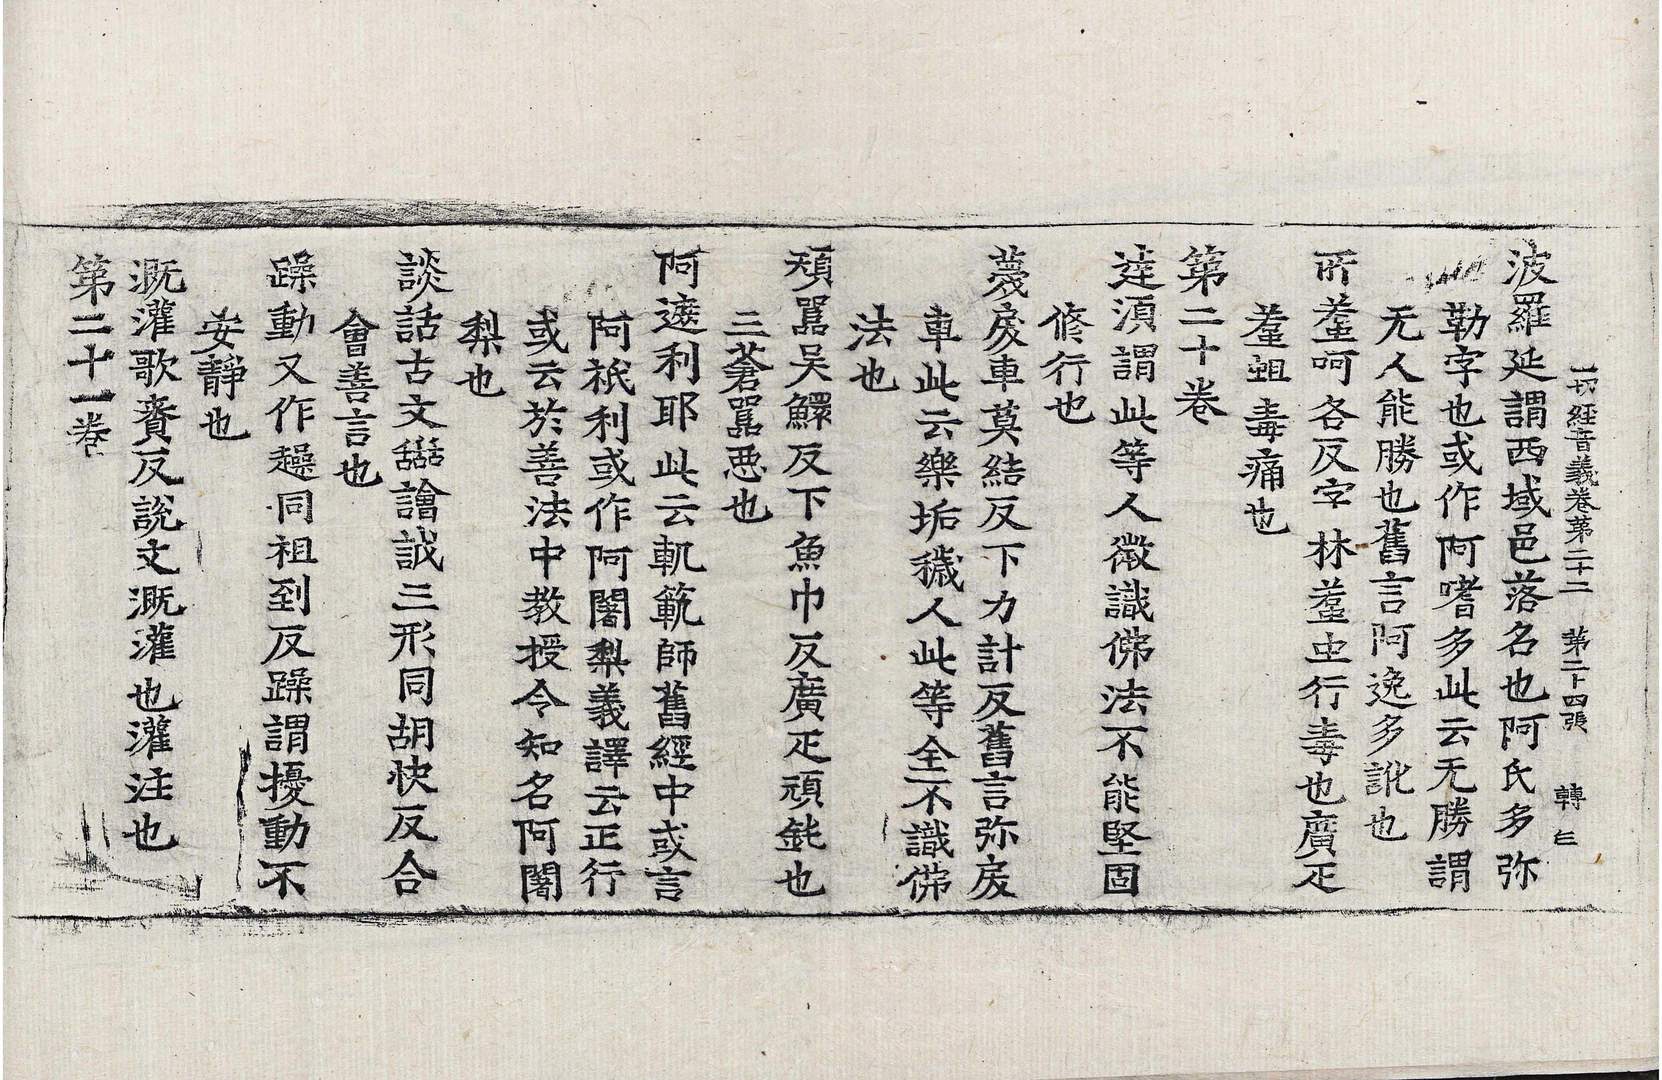 一切経音義卷第二十二 第二十四張 轉 巨
波羅延謂西域邑落名也阿氏多弥
勒字也或作阿嗜多此云无勝謂
无人能勝也舊言阿逸多訛也
所䖧呵各反字林䖧虫行毒也廣疋
䖧蛆毒痛也
第二十卷
達湏謂此等人微識佛法不能堅固
修行也
蔑戾車莫結反下力計反舊言弥戾
車此云樂垢穢人此等全不識佛
法也
頑嚚吴鰥反下魚巾反廣疋頑鈍也
三蒼嚚悪也
阿遮利耶此云軌範師舊經中或言
阿祇利或作阿闍梨義譯云正行
或云於善法中教授令知名阿闍
梨也
談話古文䛡譮㑹三形同胡快反合
會善言也
躁動又作趮同祖到反躁謂擾動不
安靜也
溉灌歌賚反說文溉灌也灌注也
第二十一卷